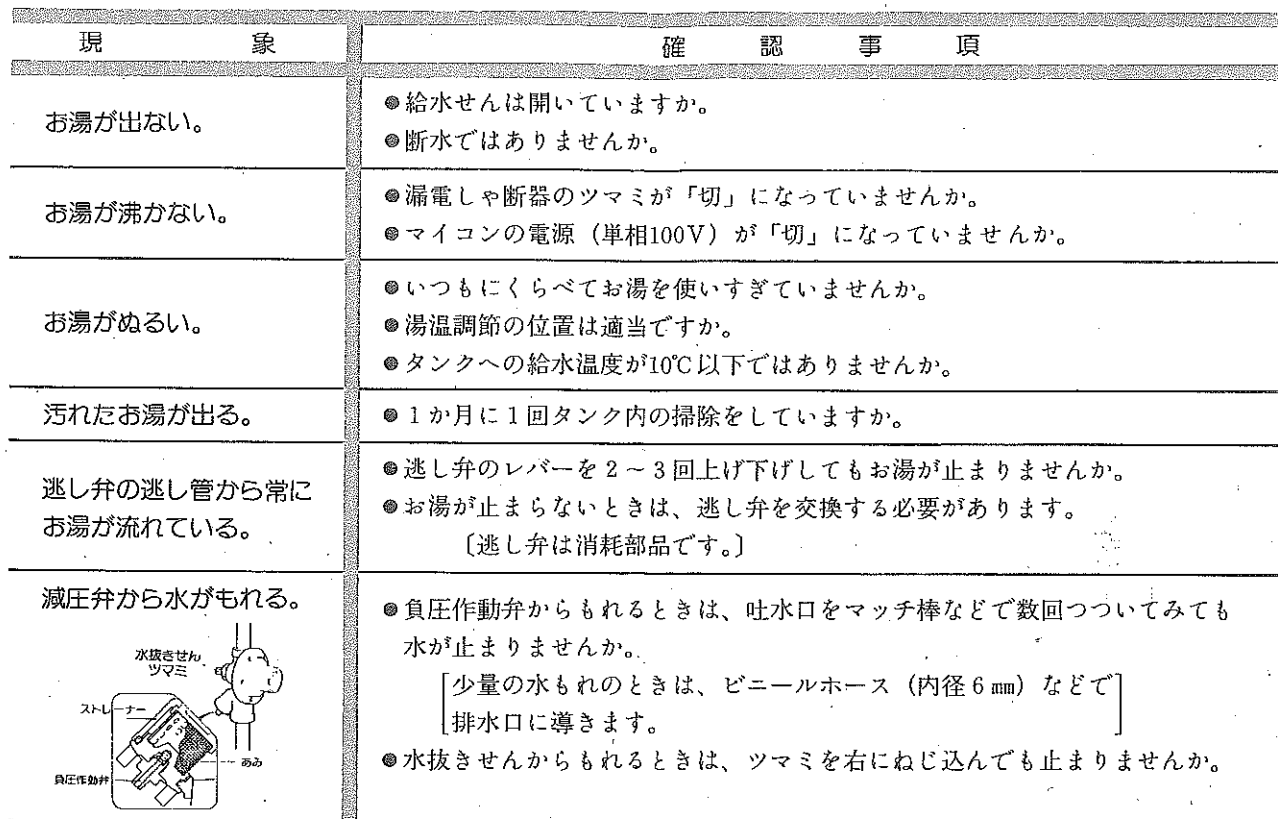 現象 確認事項
お湯が出ない。
●給水せんは開いていますか。
●断水ではありませんか。
お湯が沸かない。
●漏電しゃ断器のツマミが「切」になっていませんか。
●マイコンの電源（単相100V）が「切」になっていませんか。
お湯がぬるい。
●いつもにくらべてお湯を使いすぎていませんか。
●湯温調節の位置は適当ですか。
●タンクへの給水温度が10℃以下ではありませんか。
汚れたお湯が出る。
●1か月に1回タンク内の掃除をしていますか。
逃し弁の逃し管から常に
お湯が流れている。
●逃し弁のレバーを2～3回上げ下げしてもお湯が止まりませんか。
●お湯が止まらないときは、逃し弁を交換する必要があります。
〔逃し弁は消耗部品です。〕
減圧弁から水がもれる。
水抜きせん
ツマミ
ストレーナー
あみ
負圧作動弁
●負圧作動弁からもれるときは、吐水口をマッチ棒などで数回つついてみても
水が止まりませんか。
[少量の水もれのときは、ビニールホース（内径6㎜）などで
排水口に導きます。]
●水抜きせんからもれるときは、ツマミを右にねじ込んでも止まりませんか。